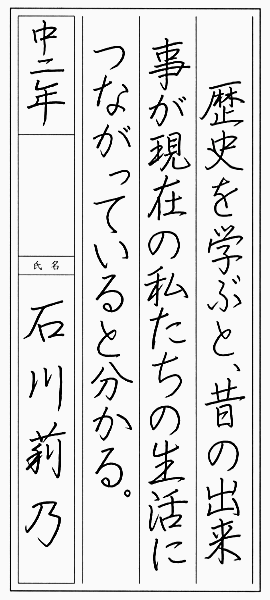 歴史を学ぶと、昔の出来
事が現在の私たちの生活に
つながっていると分かる。
中二年
氏名
石川莉乃